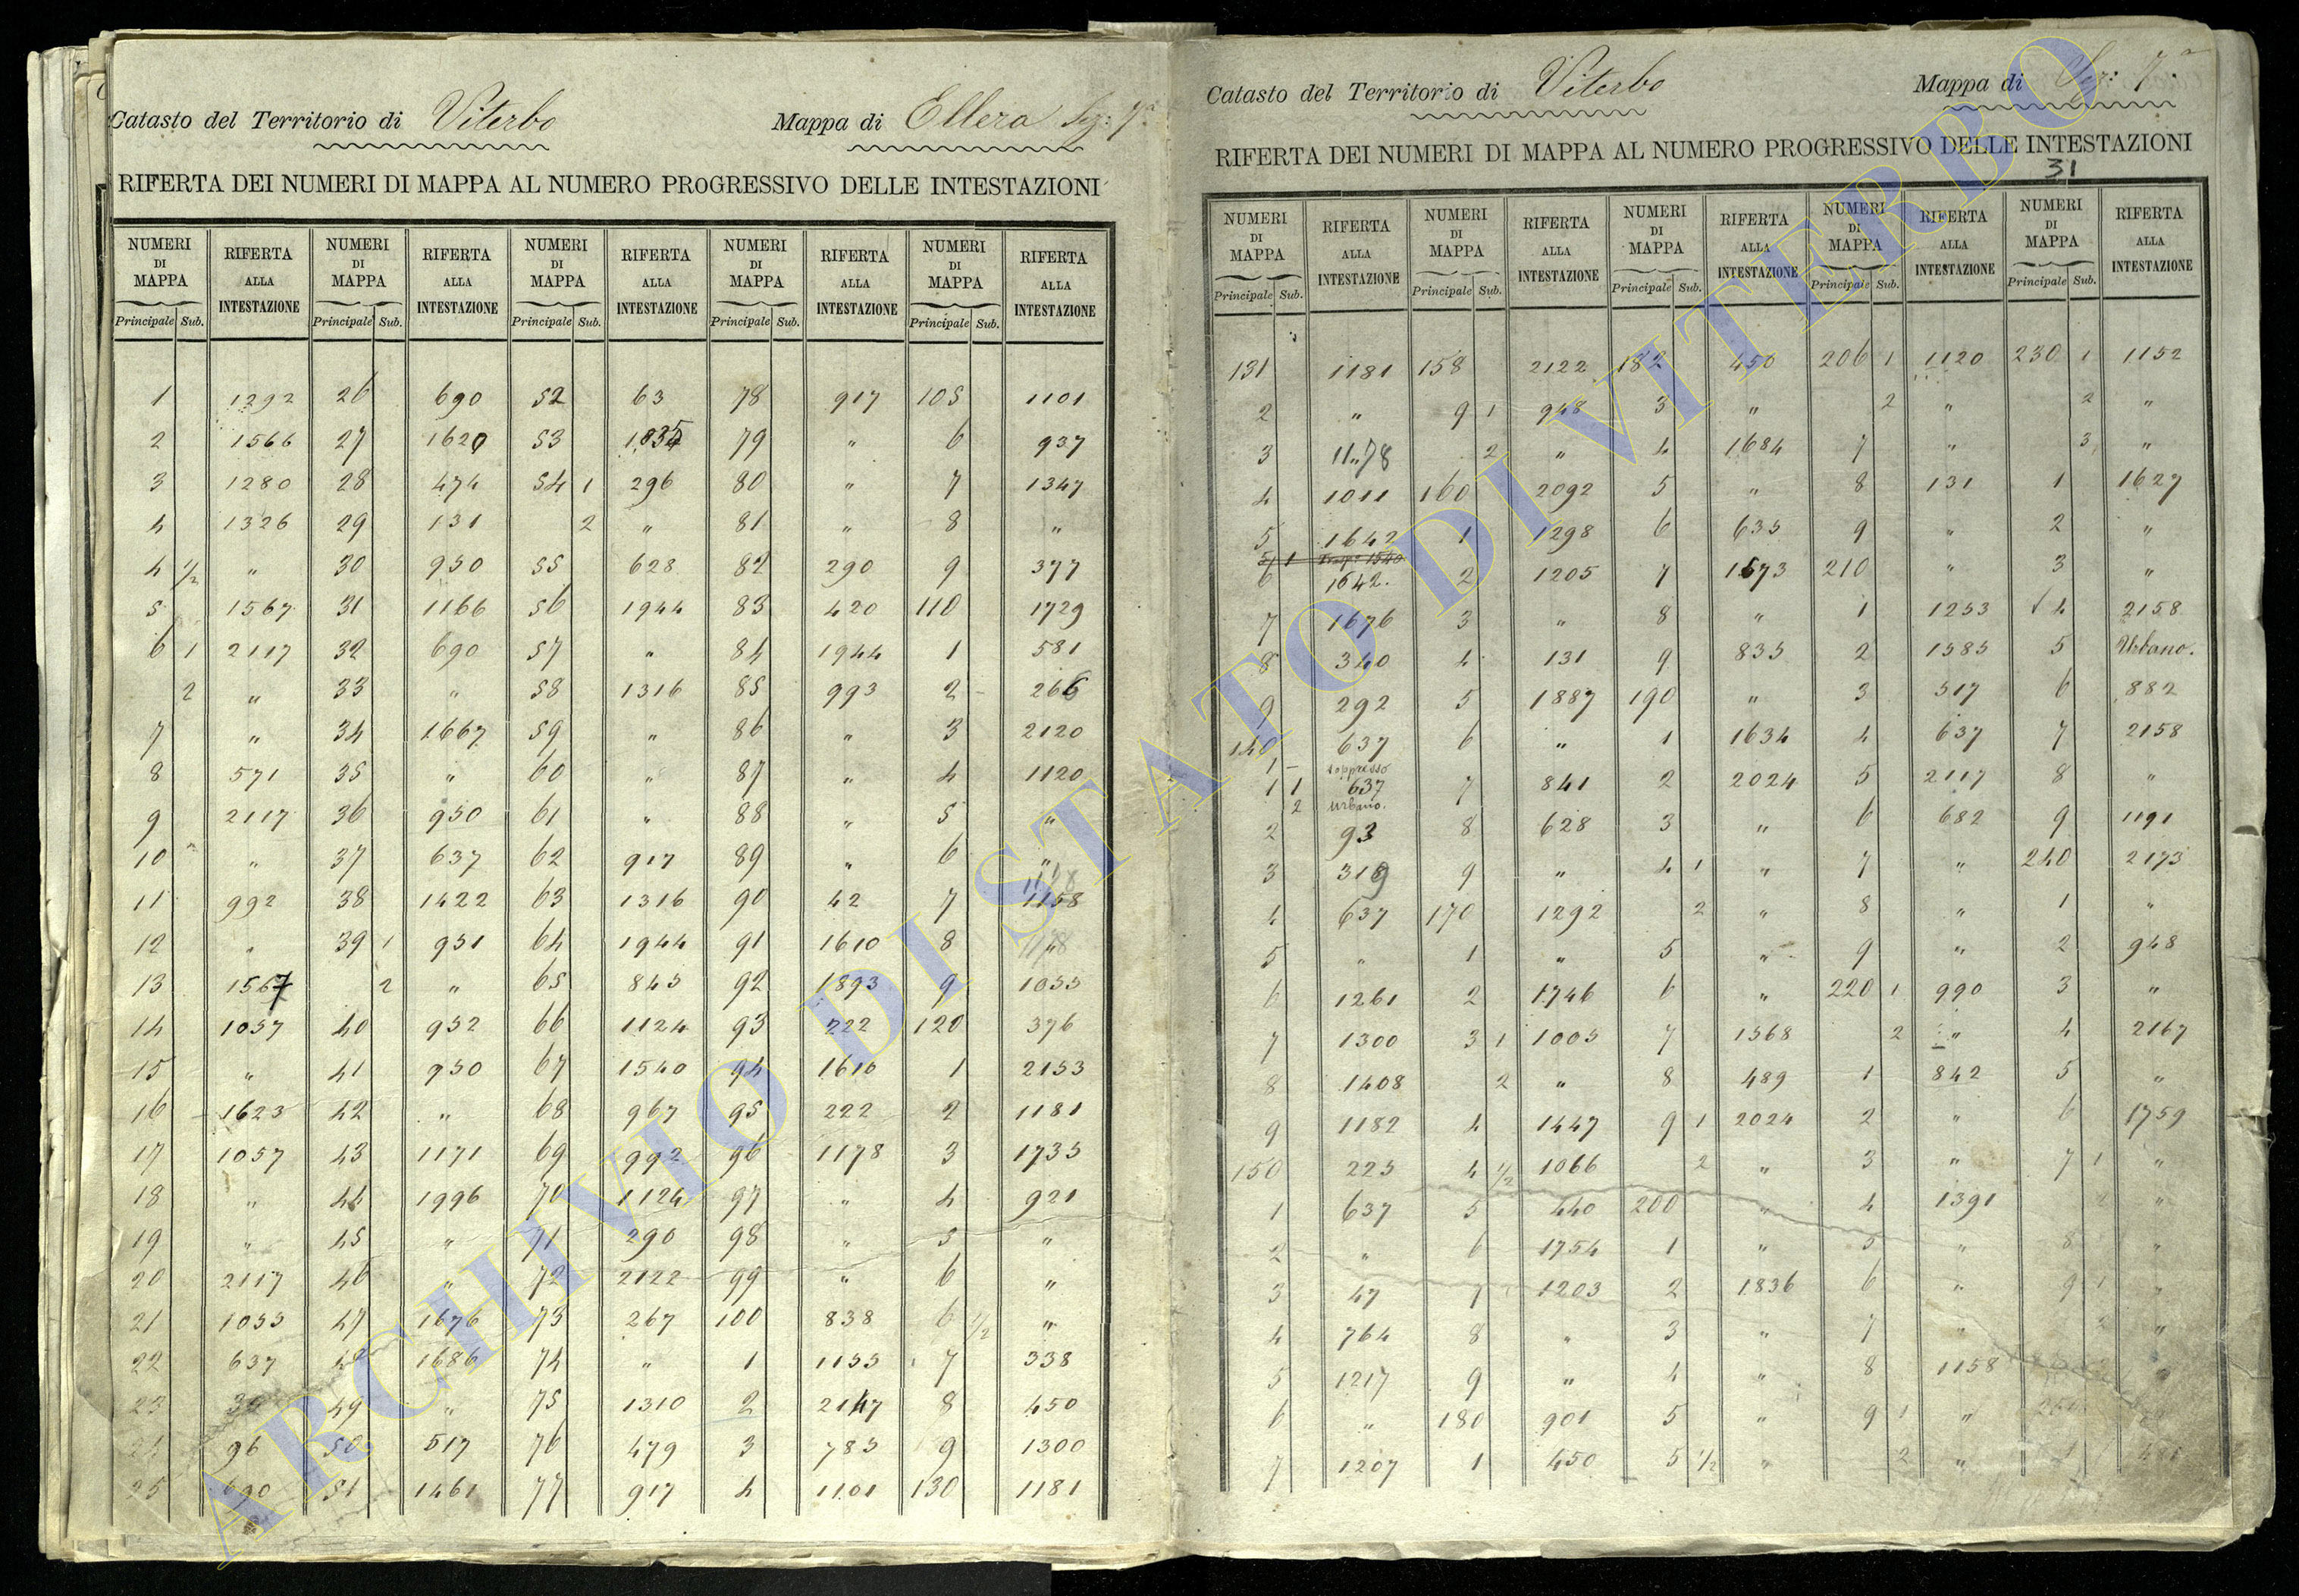 Catasto del Territorio di Viterbo Mappa di Ellera Sez: 7ª
RIFERTA DEI NUMERI DI MAPPA AL NUMERO PROGRESSIVO DELLE INTESTAZIONI
NUMERI DI MAPPA RIFERTA ALLA INTESTAZIONE NUMERI DI MAPPA RIFERTA ALLA INTESTAZIONE NUMERI DI MAPPA RIFERTA ALLA INTESTAZIONE NUMERI DI MAPPA RIFERTA ALLA INTESTAZIONE NUMERI DI MAPPA RIFERTA ALLA INTESTAZIONE
Principale Sub. Principale Sub. Principale Sub. Principale Sub. Principale Sub.
1 1292 26 690 52 63 78 917 105 1101
2 1566 27 1620 53 79 " 6 937
3 1280 28 474 54 1 296 80 " 7 1347
4 1326 29 131 2 " 81 " 8 "
4 1/2 " 30 950 55 628 82 290 9 377
5 1567 31 1166 56 1944 83 420 110 1729
6 1 2117 32 690 57 " 84 1944 1 581
2 " 33 " 58 1316 85 993 2 266
7 " 34 1667 59 " 86 " 3 2120
8 571 35 " 60 " 87 " 4 1120
9 2117 36 950 61 " 88 " 5 "
10 " 37 637 62 917 89 " 6 "
11 992 38 1422 63 1316 90 42 7 1158
12 " 39 1 951 64 1944 91 1610 8
13 1567 2 " 65 845 92 1893 9 1055
14 1057 40 952 66 1124 93 222 120 376
15 " 41 950 67 1540 94 1610 1 2153
16 1623 42 " 68 967 95 222 2 1181
17 1057 43 1171 69 992 96 1178 3 1735
18 " 44 1996 70 1124 97 " 4 921
19 " 45 " 71 290 98 " 5 "
20 2117 46 " 72 2122 99 " 6 "
21 1055 47 1676 73 267 100 838 6 1/2 "
22 637 1686 74 " 1 1155 7 338
23 49 " 75 1310 2 2147 8 450
24 96 50 517 76 479 3 785 9 1300
25 690 51 1461 77 917 4 1101 130 1181
Catasto del Territorio di Viterbo Mappa di Sez: 7ª
RIFERTA DEI NUMERI DI MAPPA AL NUMERO PROGRESSIVO DELLE INTESTAZIONI
31
NUMERI DI MAPPA RIFERTA ALLA INTESTAZIONE NUMERI DI MAPPA RIFERTA ALLA INTESTAZIONE NUMERI DI MAPPA RIFERTA ALLA INTESTAZIONE NUMERI DI MAPPA RIFERTA ALLA INTESTAZIONE NUMERI DI MAPPA RIFERTA ALLA INTESTAZIONE
Principale Sub. Principale Sub. Principale Sub. Principale Sub. Principale Sub.
131 1181 158 2122 182 450 206 1 1120 230 1 1152
2 " 9 1 948 3 " 2 " 2 "
3 1178 2 " 4 1684 7 " 3 "
4 1011 160 2092 5 " 8 131 1 1627
5 1642 1 1298 6 635 9 " 2 "
6 1642. 2 1205 7 1573 210 " 3 "
7 1676 3 " 8 " 1 1253 4 2158
8 340 4 131 9 835 2 1585 5 Urbano.
9 292 5 1887 190 " 3 517 6 882
140 637 6 " 1 1634 4 637 7 2158
1 soppresso
1 1 637 7 841 2 2024 5 2117 8 "
2 Urbano.
2 93 8 628 3 " 6 682 9 1191
3 319 9 " 4 1 " 7 " 240 2173
4 637 170 1292 2 " 8 " 1 "
5 " 1 " 5 " 9 " 2 948
6 1261 2 1746 6 " 220 1 990 3 "
7 1300 3 1 1005 7 1568 2 " 4 2167
8 1408 2 " 8 489 1 842 5 "
9 1182 4 1447 9 1 2024 2 " 6 1759
150 225 4 1/2 1066 2 " 3 " 7 1 "
1 637 5 440 200 " 4 1391 2 "
2 " 6 1754 1 " 5 " 8 "
3 47 7 1203 2 1836 6 " 9 1 "
4 764 8 " 3 " 7 " "
5 1217 9 " 4 " 8 1158 "
6 " 180 901 5 " 9 1 "
7 1207 1 450 5 1/2 " 2 " 1
ARCHIVIO DI STATO DI VITERBO